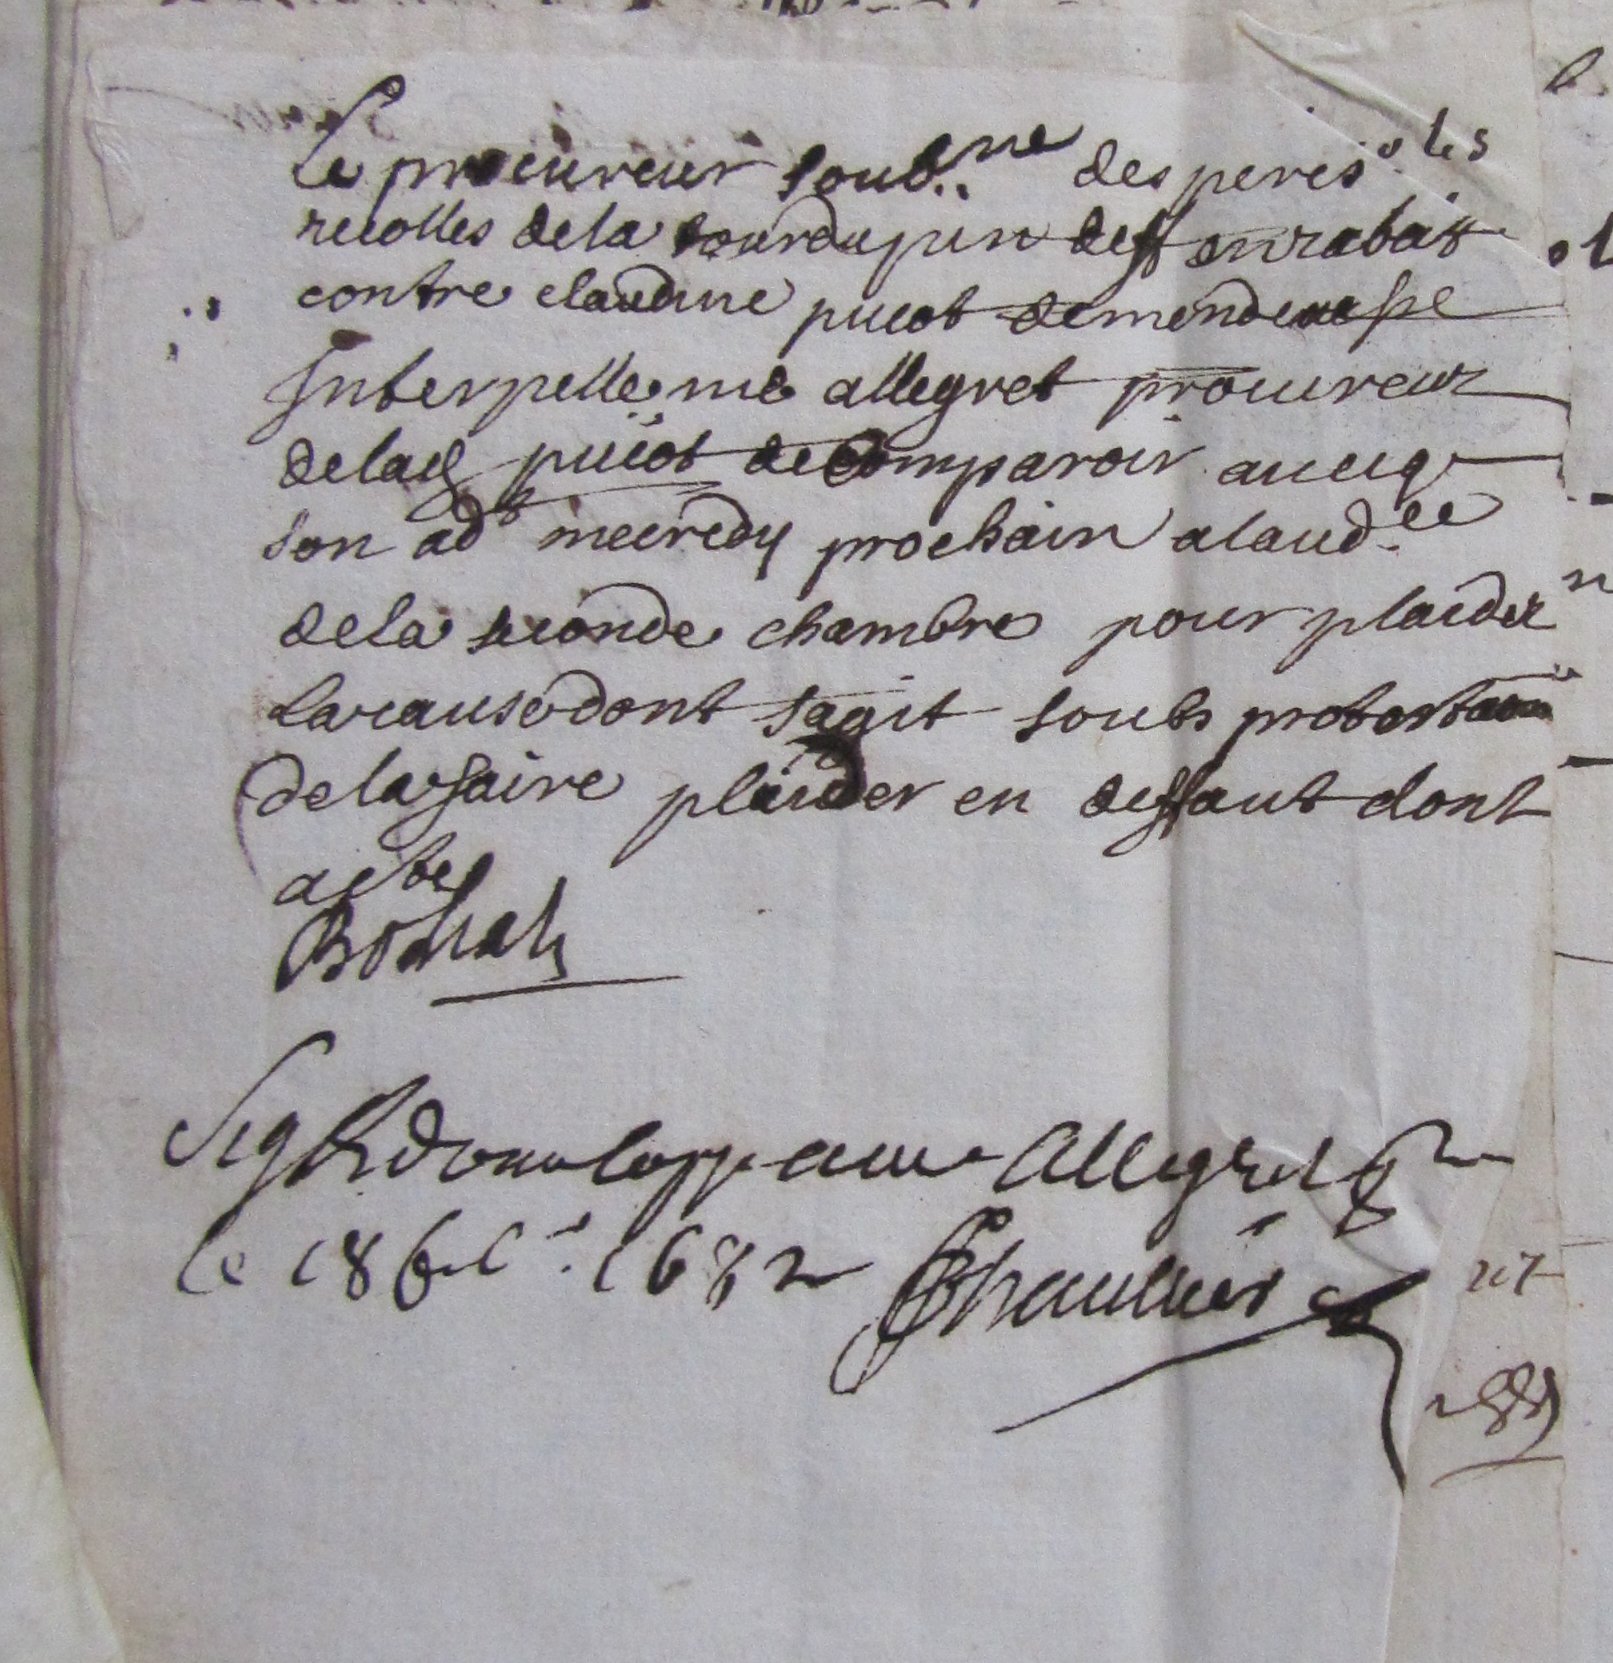 Le procureur soub.ne des peres
recolles de la tourdupin deff en rabais
contre claudine pucot demenderesse
Interpelle me allegret procureur
de lad pucot de comparoir avecq
son adt mecredy prochain a laud.ce
de la seconde chambre pour plaider
la cause dont sagit soubs protestaon
de la faire plaider en deffaut dont
acte
Sig Rd coppe a me Allegret pr
le 18 1682